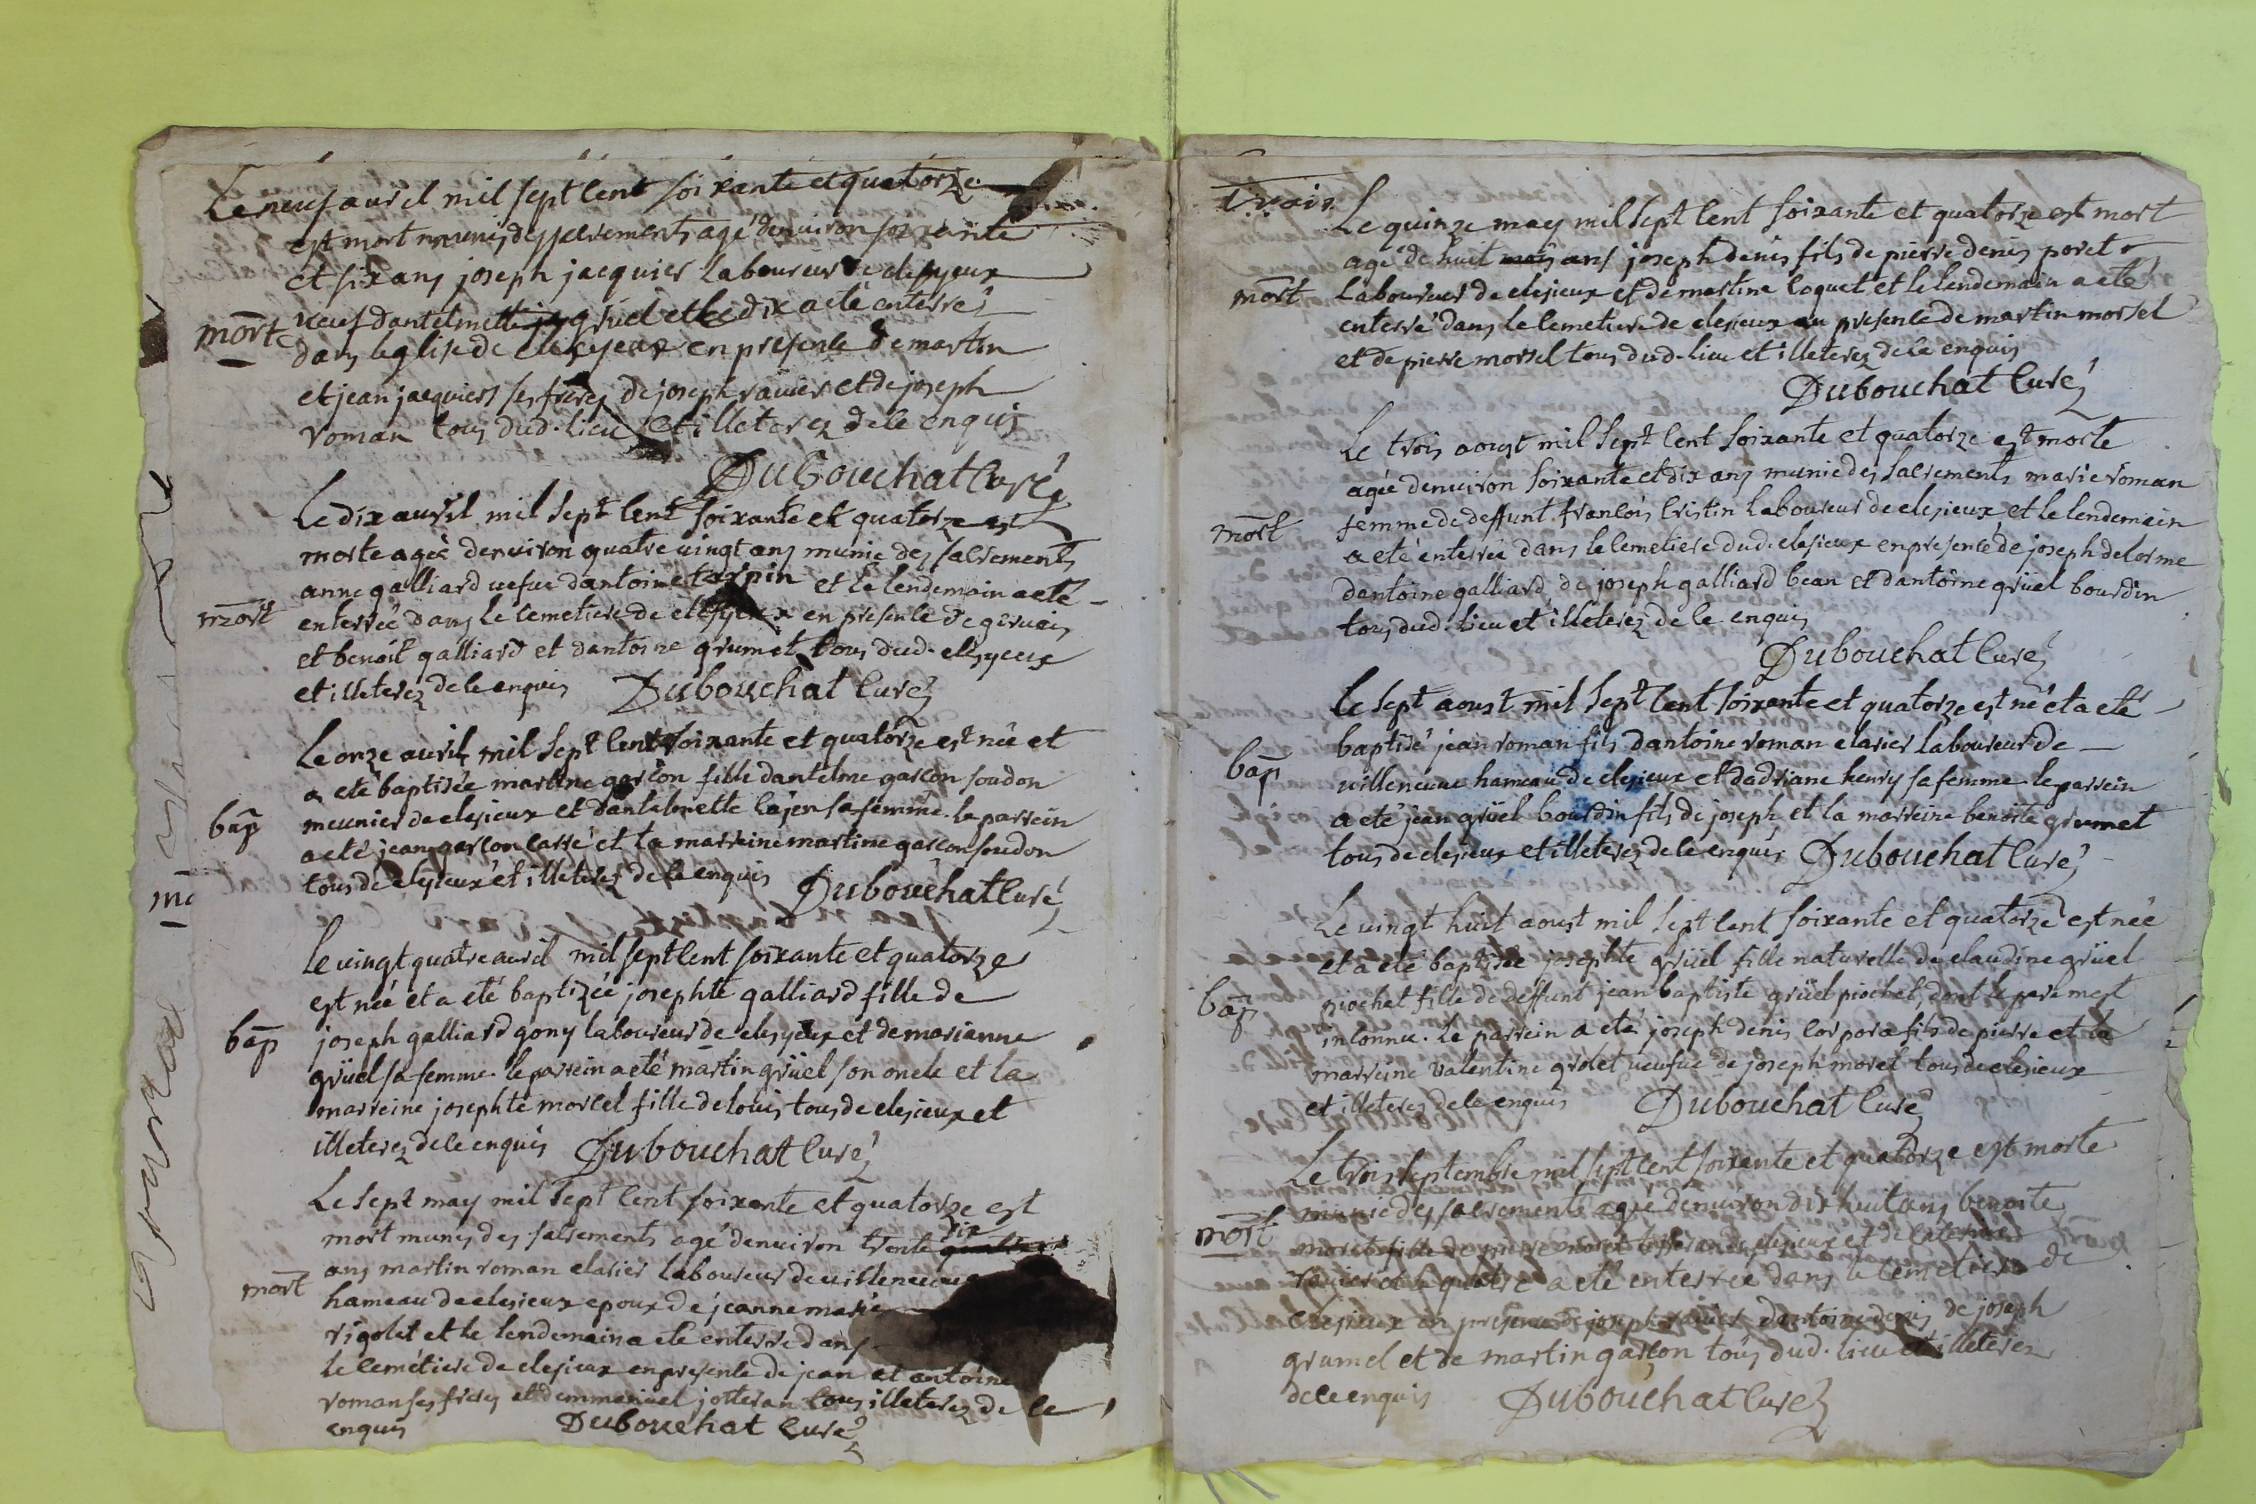 Le neuf avril mil sept cent soixante et quatorze
est mort munis des sacrements agé denuiron soixante
et six ans joseph jacquier laboureur de clesyeux
veuf dantelmette grüel et le dix a eté enterré
mort
dans leglise de clesyeux en presence de martin
et jean jacquiers ses freres de joseph ravier et de joseph
roman tous dud. lieu et illeterez de ce enquis
Dubouchat Curé
Le dix avril mil sept cent soixante et quatorze est
morte agée denuiron quatre vingt ans munie des sacrements
anne galliard vefve dantoine tarpin et le lendemain a eté
mort
enterrée dans le cemetiere de clesyeux en presence de gervais
et benoit galliard et dantoine grumet tous dud. clesyeux
et illeterez de ce enquis Dubouchat Curé
Le onze avril mil sept cent soixante et quatorze est née et
a eté baptisée martine garçon fille dantelme garçon soudon
bap
meunier de clesieux et dantelmette cajen sa femme. le parrein
a eté jean garçon cassé et la marreine martine garcon soudon
tous de clesieux et illeterez de ce enquis Dubouchat Curé
Le vingt quatre avril mil sept cent soixante et quatorze
est née et a eté baptizée josephte galliard fille de
bap
joseph galliard gony laboureur de clesyeux et de marianne
grüel sa femme. le parrein a eté martin grüel son oncle et la
marreine josephte morcel fille de louis tous de clesieux et
illeterez de ce enquis Dubouchat Curé
Le sept may mil sept cent soixante et quatorze est
mort munis des sacrements agé denuiron trente six
ans martin roman clarier laboureur de villeneuve
mort
hameau de clesieux epoux de jeanne marie
rigolet et le lendemain a ete enterré dans
le cemétiere de clesieux en presence de jean et antoine
roman ses freres et demmanuel jotteran tous illeterez de ce
enquis Dubouchat Curé
Trois
Le quinze may mil sept cent soixante et quatorze est mort
agé de huit ans joseph denis fils de pierre denis poret
mort
laboureur de clesieux et de martine coquet et le lendemain a eté
enterré dans le cemetiere de clesieux en presence de martin morsel
et de pierre morsel tous dud. lieu et illeterez de ce enquis
Dubouchat Curé
Le trois aoust mil sept cent soixante et quatorze est morte
agée denuiron soixante et dix ans munie des sacrements marie roman
mort
femme de deffunt françois cristin laboureur de clesieux et le lendemain
a eté enterrée dans le cemetiere dud. clesieux en presence de joseph delorme
dantoine galliard de joseph galliard bean et dantoine grüel bourdin
tous dud. lieu et illeterez de ce enquis
Dubouchat Curé
Le sept aoust mil sept cent soixante et quatorze est né et a eté
baptisé jean roman fils dantoine roman clarier laboureur de
bap
villeneuve hameau de clesieux et dadriane henry sa femme. le parrein
a eté jean grüel bourdin fils de joseph et la marreine benoite grumet
tous de clesieux et illeterez de ce enquis Dubouchat Curé
Le vingt huit aoust mil sept cent soixante et quatorze est née
et a eté baptisée josephte grüel fille naturelle de claudine grüel
bap
piochet fille de deffunt jean baptiste grüel piochet, dont le pere mest
inconnu. le parrein a eté joseph denis corpora fils de pierre et la
marreine valentine grolet veufve de joseph moret tous de clesieux
et illeterez de ce enquis Dubouchat Curé
Le trois septembre mil sept cent soixante et quatorze est morte
munie des sacrements agée denuiron dix huit ans benoite
mort
moret fille de pierre moret de clesieux et de
ravier et le quatre a eté enterrée dans le cemetiere de
clesieux en presence de joseph ravier dantoine denis de joseph
grumel et de martin garçon tous dud. lieu et illeterez
de ce enquis Dubouchat Curé